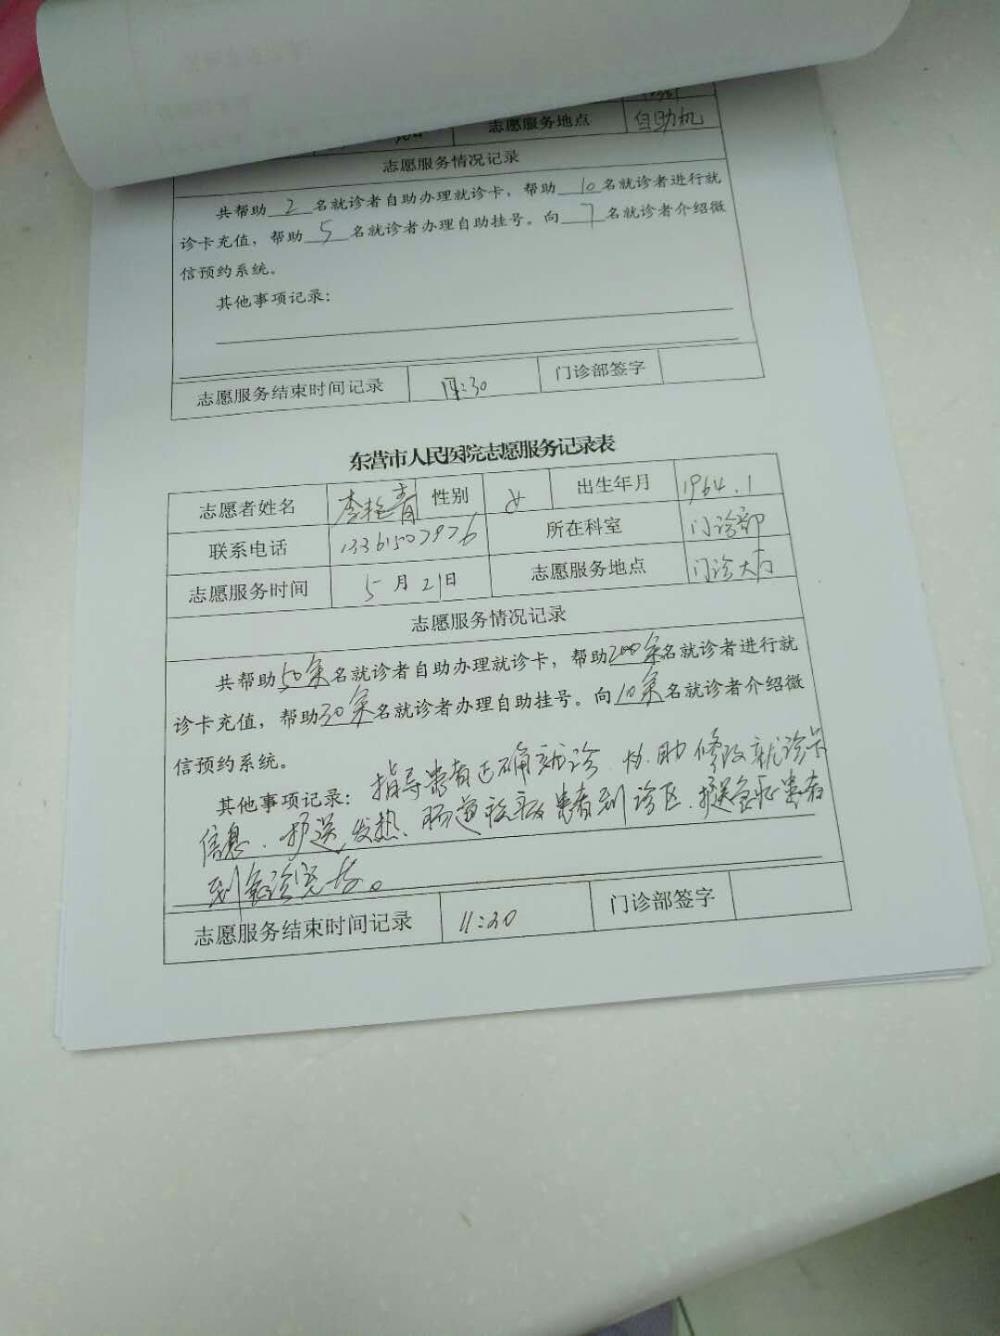 志愿服务地点 自助机
志愿服务情况记录
共帮助2名就诊者自助办理就诊卡，帮助10名就诊者进行就
诊卡充值，帮助5名就诊者办理自助挂号。向7名就诊者介绍微
信预约系统。
其他事项记录：
志愿服务结束时间记录 :30 门诊部签字
东营市人民医院志愿服务记录表
志愿者姓名 李艳青 性别 女 出生年月 1964.1
联系电话 13361507976 所在科室 门诊部
志愿服务时间 5月21日 志愿服务地点 门诊大厅
志愿服务情况记录
共帮助50余名就诊者自助办理就诊卡，帮助200余名就诊者进行就
诊卡充值，帮助30余名就诊者办理自助挂号。向10余名就诊者介绍微
信预约系统。
其他事项记录：指导患者正确就诊、协助修改就诊卡
信息、护送发热、肠道患者到诊区、护送急症患者
到急诊
志愿服务结束时间记录 11:30 门诊部签字